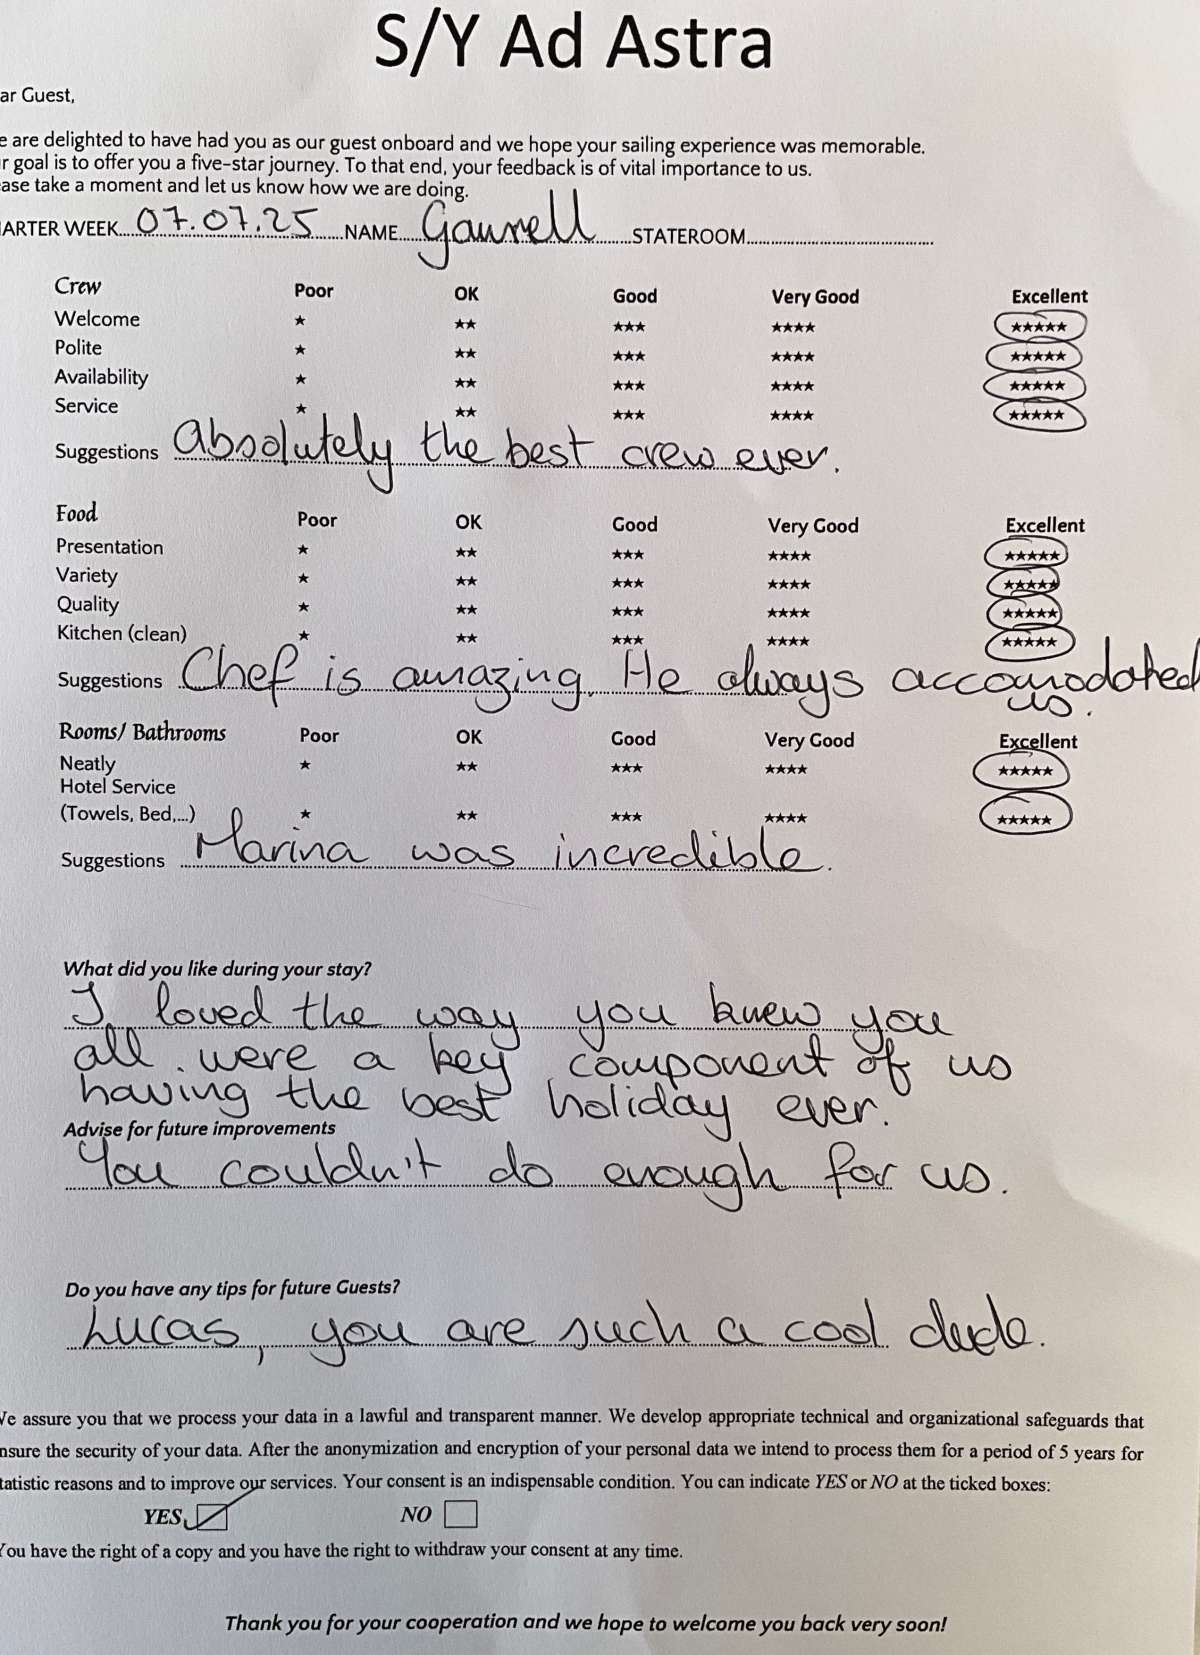 S/Y Ad Astra
ar Guest,
e are delighted to have had you as our guest onboard and we hope your sailing experience was memorable.
r goal is to offer you a five-star journey. To that end, your feedback is of vital importance to us.
ase take a moment and let us know how we are doing.
ARTER WEEK 07.07.25 NAME STATEROOM
Crew Poor OK Good Very Good Excellent
Welcome ★ ★★ ★★★ ★★★★ ★★★★★
Polite ★ ★★ ★★★ ★★★★ ★★★★★
Availability ★ ★★ ★★★ ★★★★ ★★★★★
Service ★ ★★ ★★★ ★★★★ ★★★★★
Suggestions absolutely the best crew ever.
Food Poor OK Good Very Good Excellent
Presentation ★ ★★ ★★★ ★★★★ ★★★★★
Variety ★ ★★ ★★★ ★★★★ ★★★★★
Quality ★ ★★ ★★★ ★★★★ ★★★★★
Kitchen (clean) ★ ★★ ★★★ ★★★★ ★★★★★
Suggestions Chef is amazing. He always accomodated
us.
Rooms/ Bathrooms Poor OK Good Very Good Excellent
Neatly ★ ★★ ★★★ ★★★★ ★★★★★
Hotel Service
(Towels, Bed,...) ★ ★★ ★★★ ★★★★ ★★★★★
Suggestions Marina was incredible.
What did you like during your stay?
I loved the way you knew you
all were a key component of us
having the best holiday ever.
Advise for future improvements
You couldn't do enough for us.
Do you have any tips for future Guests?
Lucas, you are such a cool dude.
We assure you that we process your data in a lawful and transparent manner. We develop appropriate technical and organizational safeguards that
nsure the security of your data. After the anonymization and encryption of your personal data we intend to process them for a period of 5 years for
tatistic reasons and to improve our services. Your consent is an indispensable condition. You can indicate YES or NO at the ticked boxes:
YES NO
You have the right of a copy and you have the right to withdraw your consent at any time.
Thank you for your cooperation and we hope to welcome you back very soon!